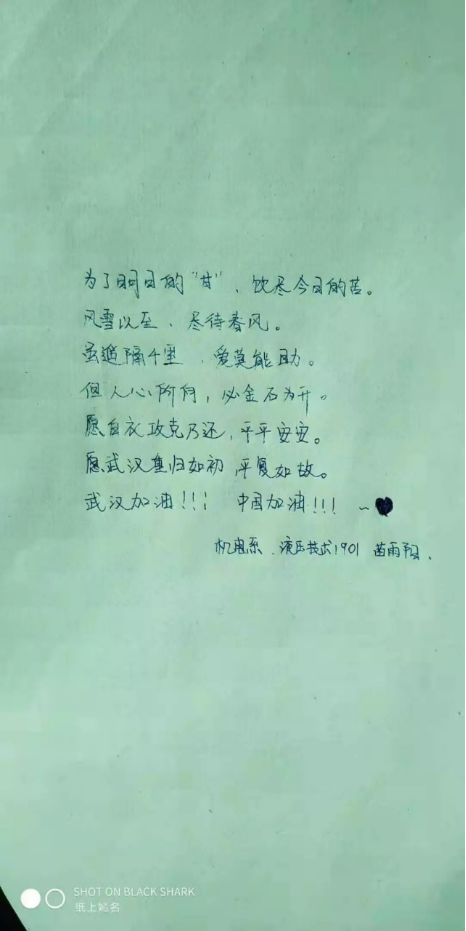 为了明日的“甘”、饮尽今日的苦。
风雪以至、尽待春风。
虽遥隔千里、爱莫能助。
但人心所向，必金石为开。
愿白衣攻克乃还，平平安安。
愿武汉重归如初，平复如故。
武汉加油!!! 中国加油!!! ~
机电系、液压技术1901 苗雨阳.
SHOT ON BLACK SHARK
纸上姓名